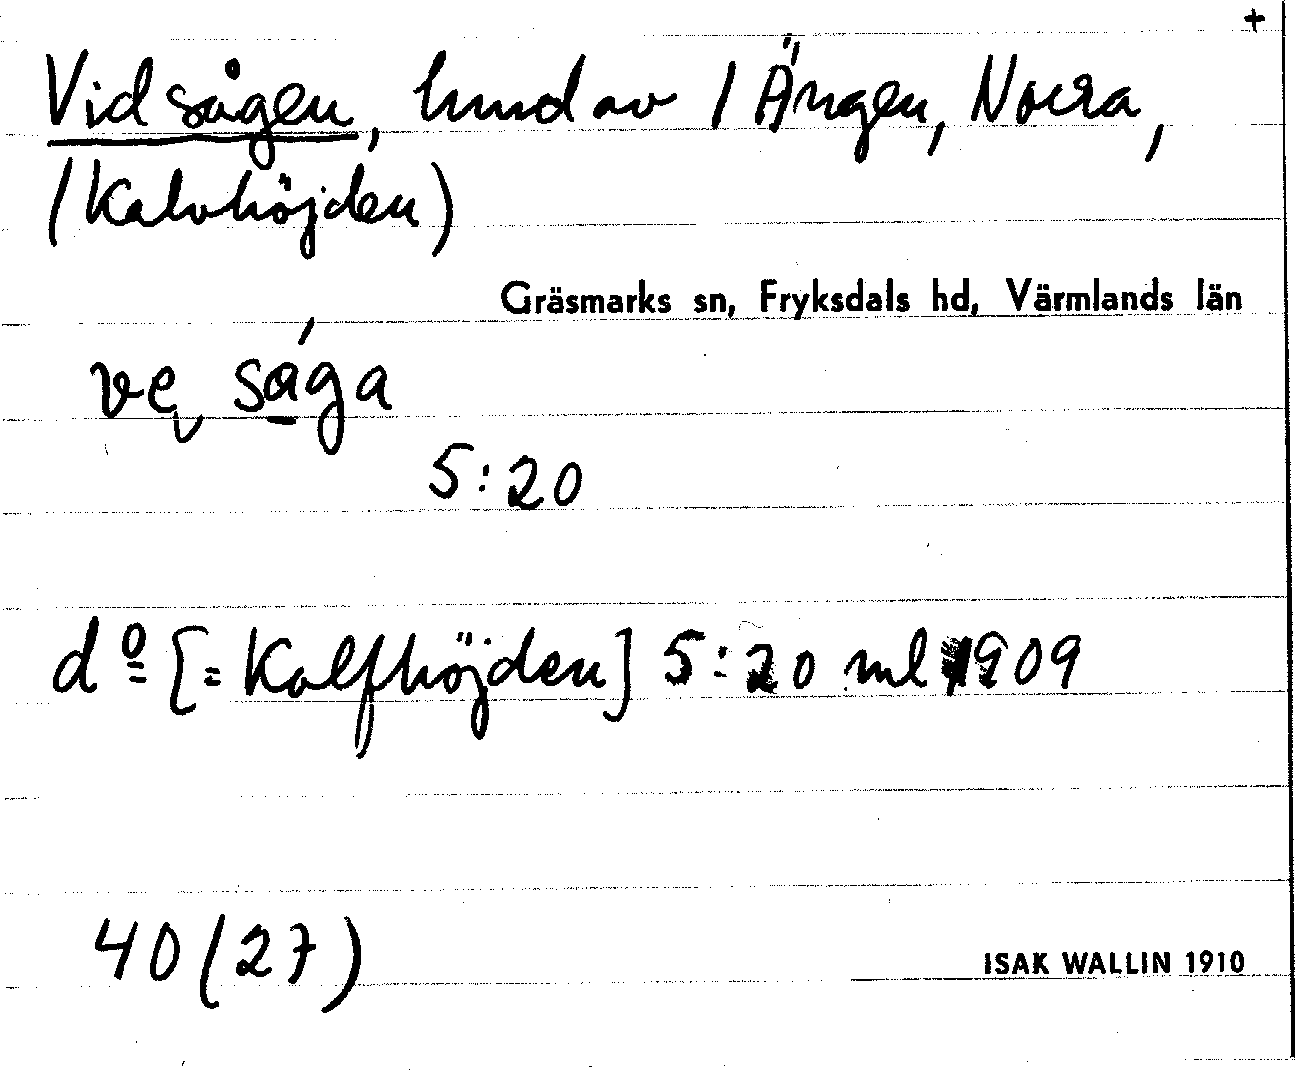 +
Vid sågen, hmd av / Ängen, Norra,
(Kalvhöjden)
Gräsmarks sn, Fryksdals hd, Värmlands län
ve sága
5:20
dº [= Kalfhöjden] 5:20 ml 1909
40 (27)
ISAK WALLIN 1910